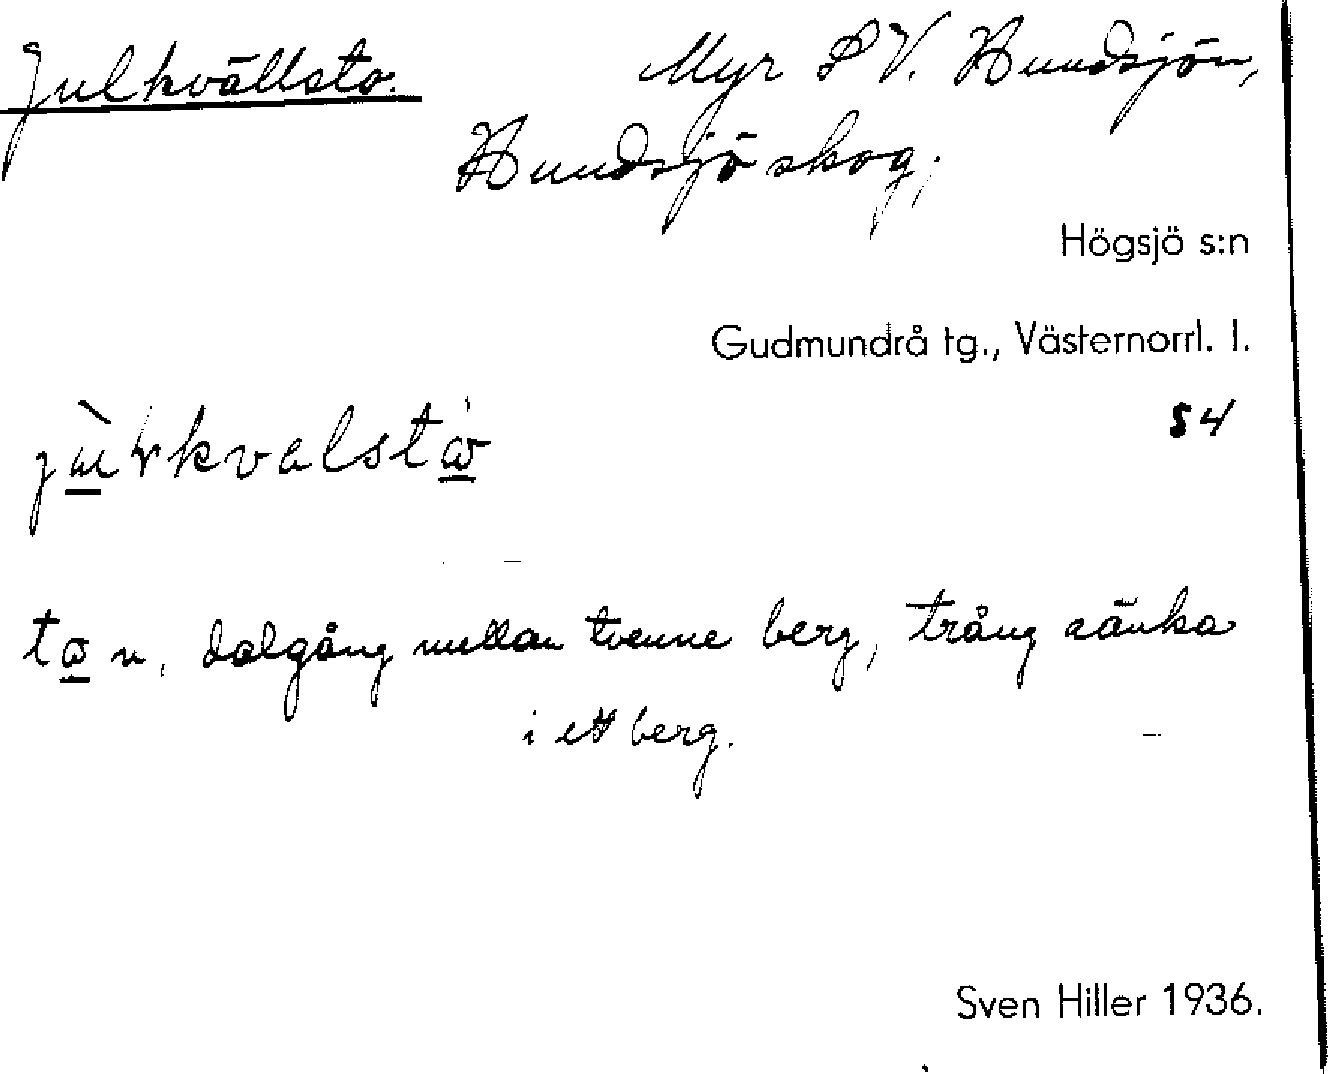 Julkvällsto. Myr S V. Hundsjön,
Hundsjö skog,
Högsjö s:n
Gudmundrå tg., Västernorrl. l.
54
to n, dalgång mellan tvenne berg, trång sänka
i ett berg.
Sven Hiller 1936.